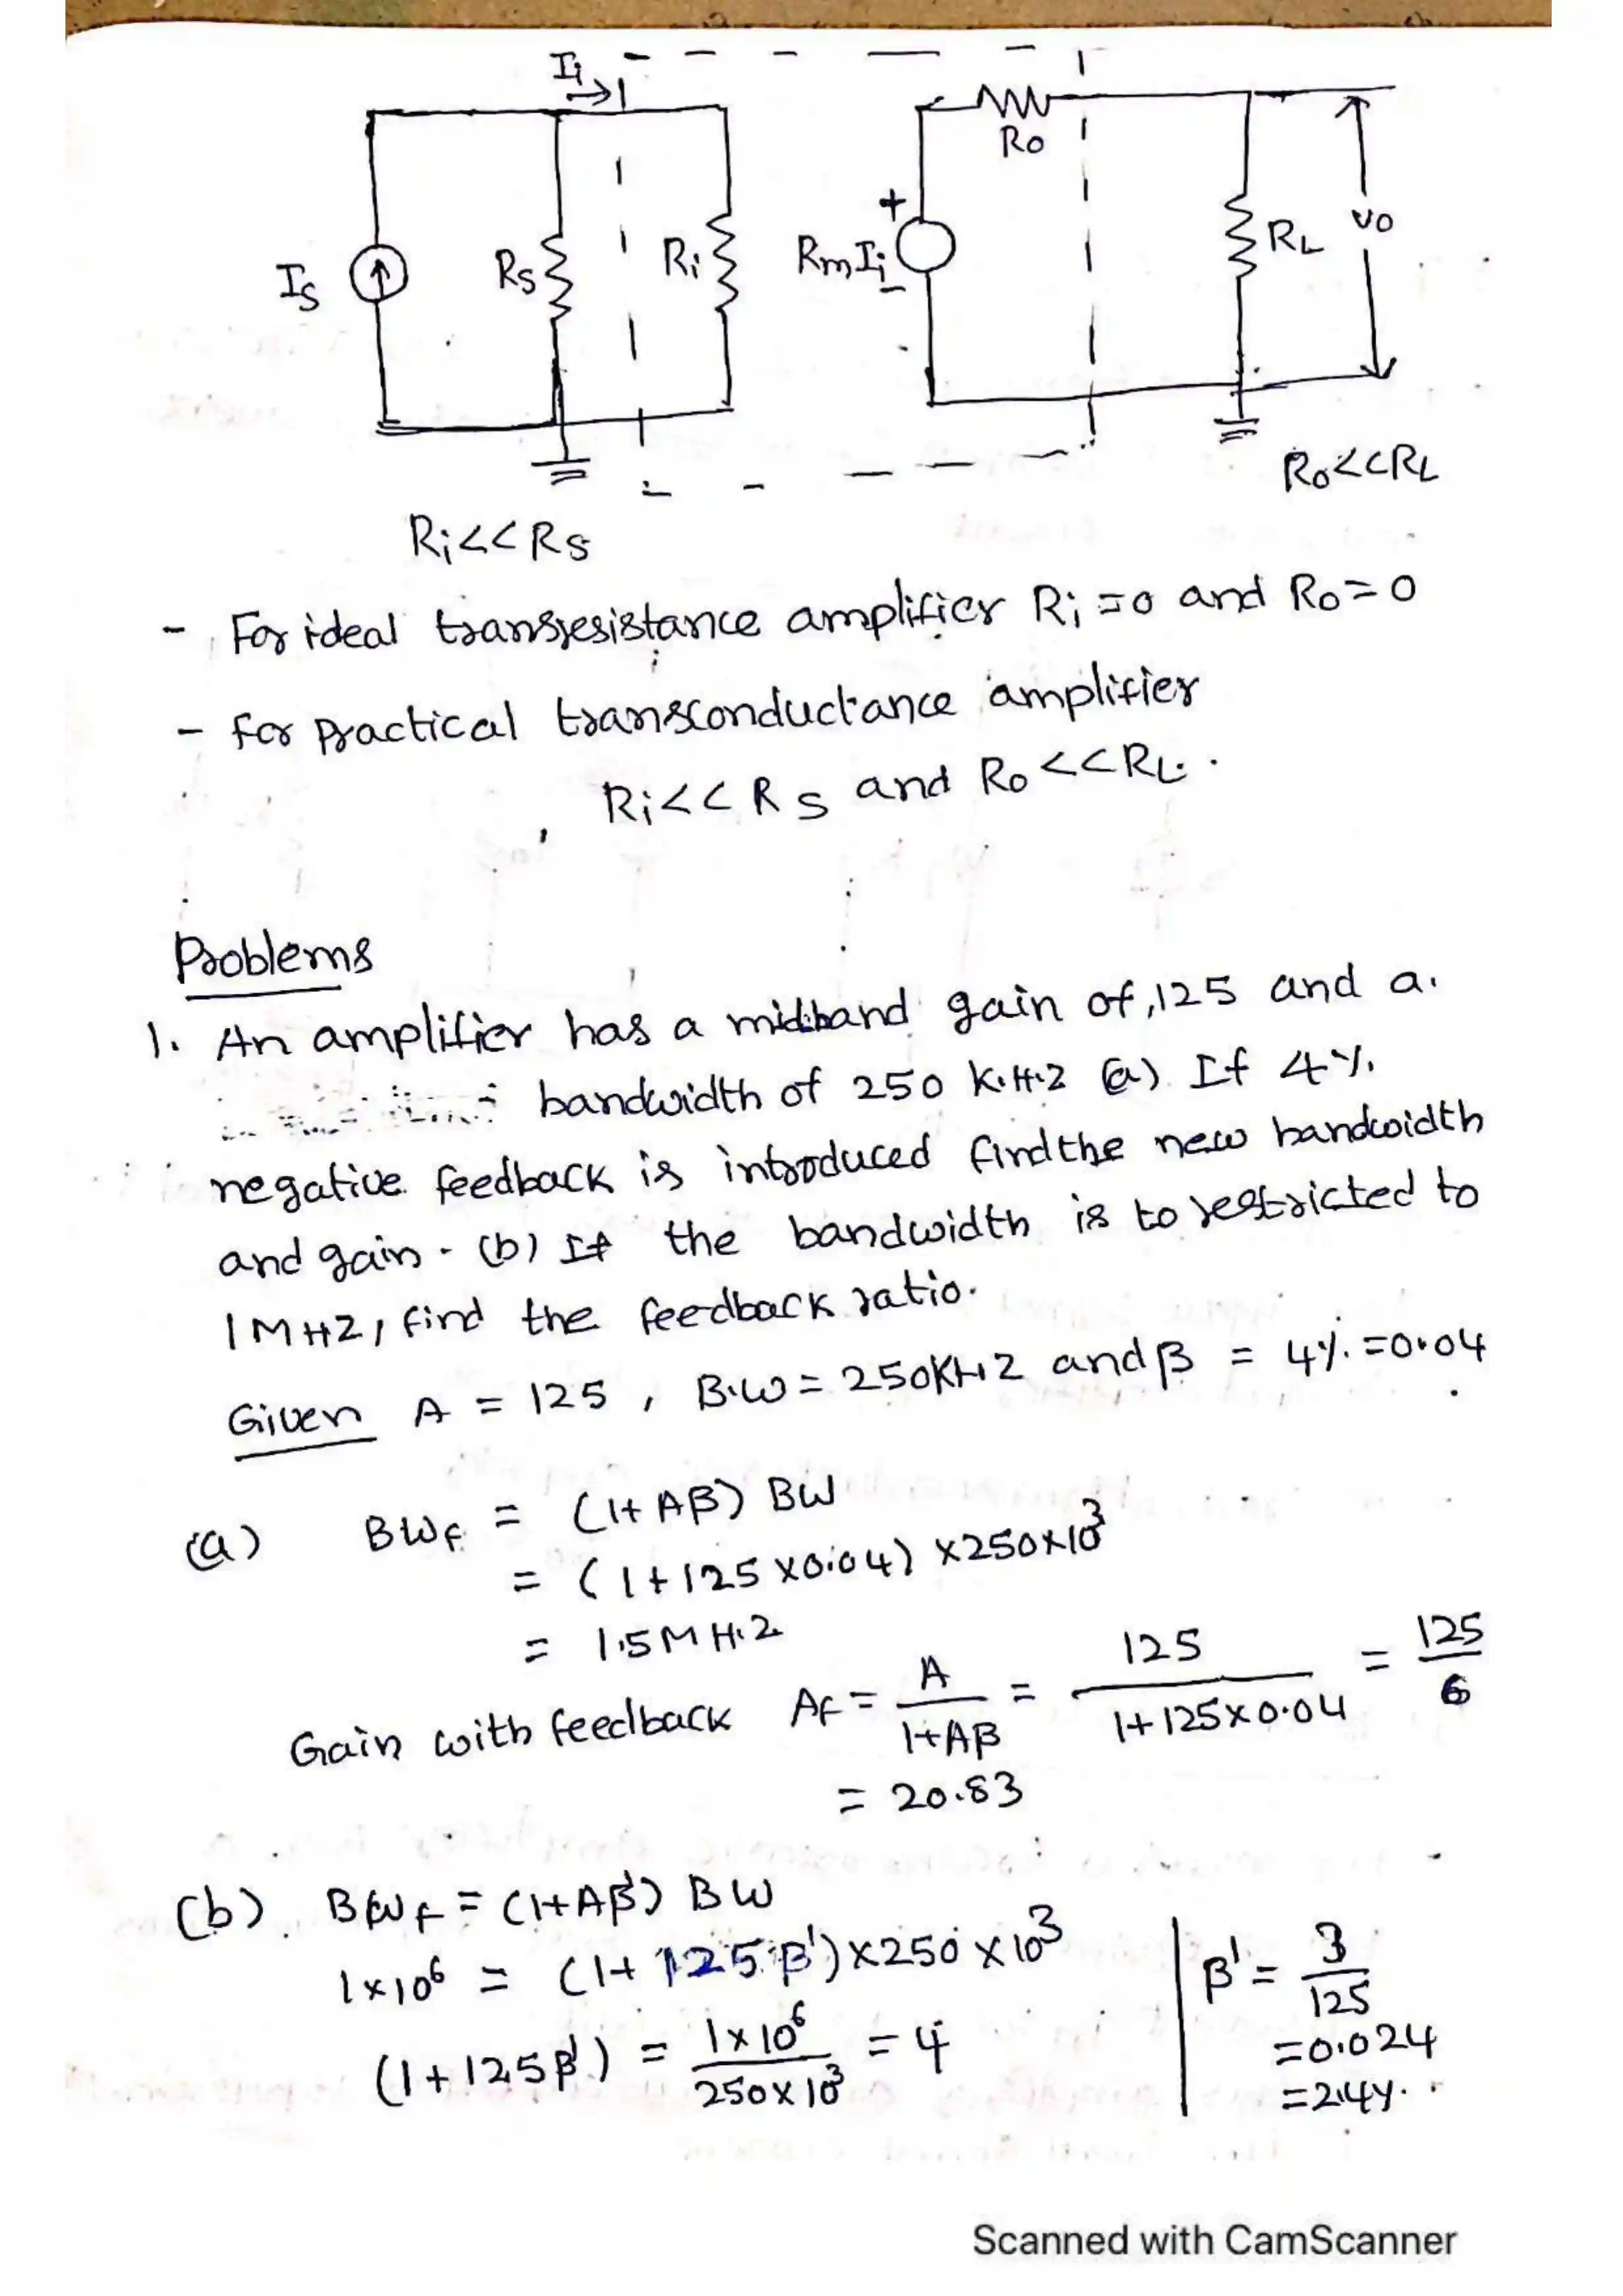 Ii
Ro
Is
Rs
Ri
+
RmIi
-
RL
vo
Ro<<RL
Ri<<Rs
- For ideal transresistance amplifier Ri=0 and Ro=0
- for practical transconductance amplifier
Ri<<Rs and Ro<<RL.
Problems
1. An amplifier has a midband gain of 125 and a
bandwidth of 250 K.Hz (a) If 4%
negative feedback is introduced find the new bandwidth
and gain. (b) If the bandwidth is to restricted to
1MHZ, find the feedback ratio.
Given A = 125, B.W = 250KHZ and β = 4% = 0.04
(a) BWf = (1+Aβ) BW
= (1+125×0.04) ×250×10³
= 1.5MHz
Gain with feedback Af = A/(1+Aβ) = 125/(1+125×0.04) = 125/6
= 20.83
(b). BWf = (1+Aβ') BW
1×10⁶ = (1+125β')×250×10³
(1+125β') = 1×10⁶/250×10³ = 4
β' = 3/125
=0.024
=2.4%.
Scanned with CamScanner